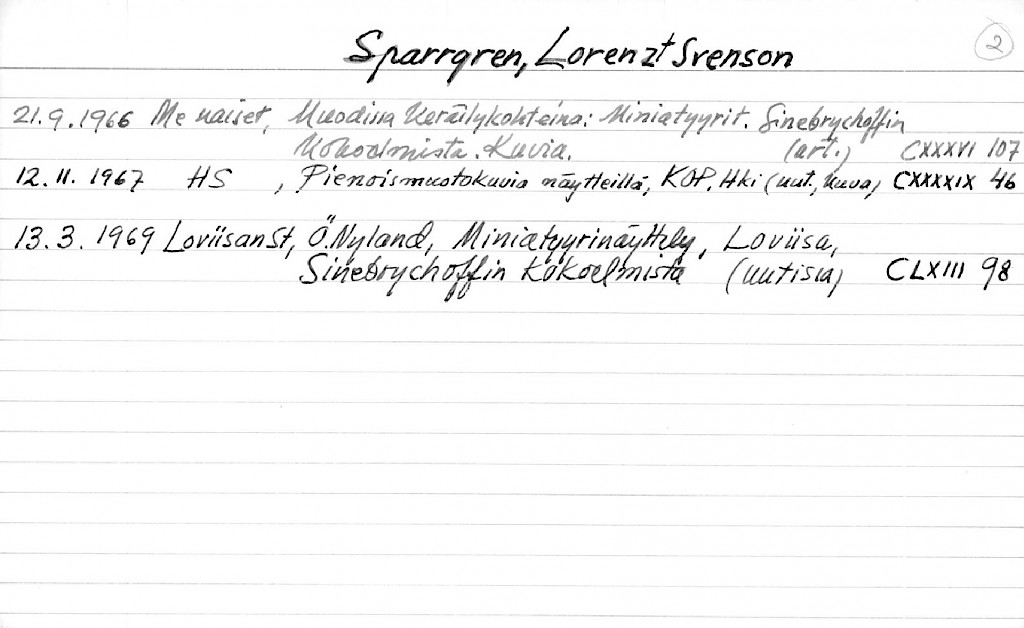 Sparrgren, Lorenzt Svenson 2
21.9.1966 Me naiset, Muodissa Keräilykohteina: Miniatyyrit. Sinebrychoffin
Kokoelmista. Kuvia. (art.) CXXXVI 107
12.11.1967 HS , Pienoismuotokuvia näytteillä, KOP, Hki (uut., kuva) CXXXXIX 46
13.3.1969 LoviisanSt, Ö.Nyland, Miniatyyrinäyttely, Loviisa,
Sinebrychoffin kokoelmista (uutisia) CLXIII 98